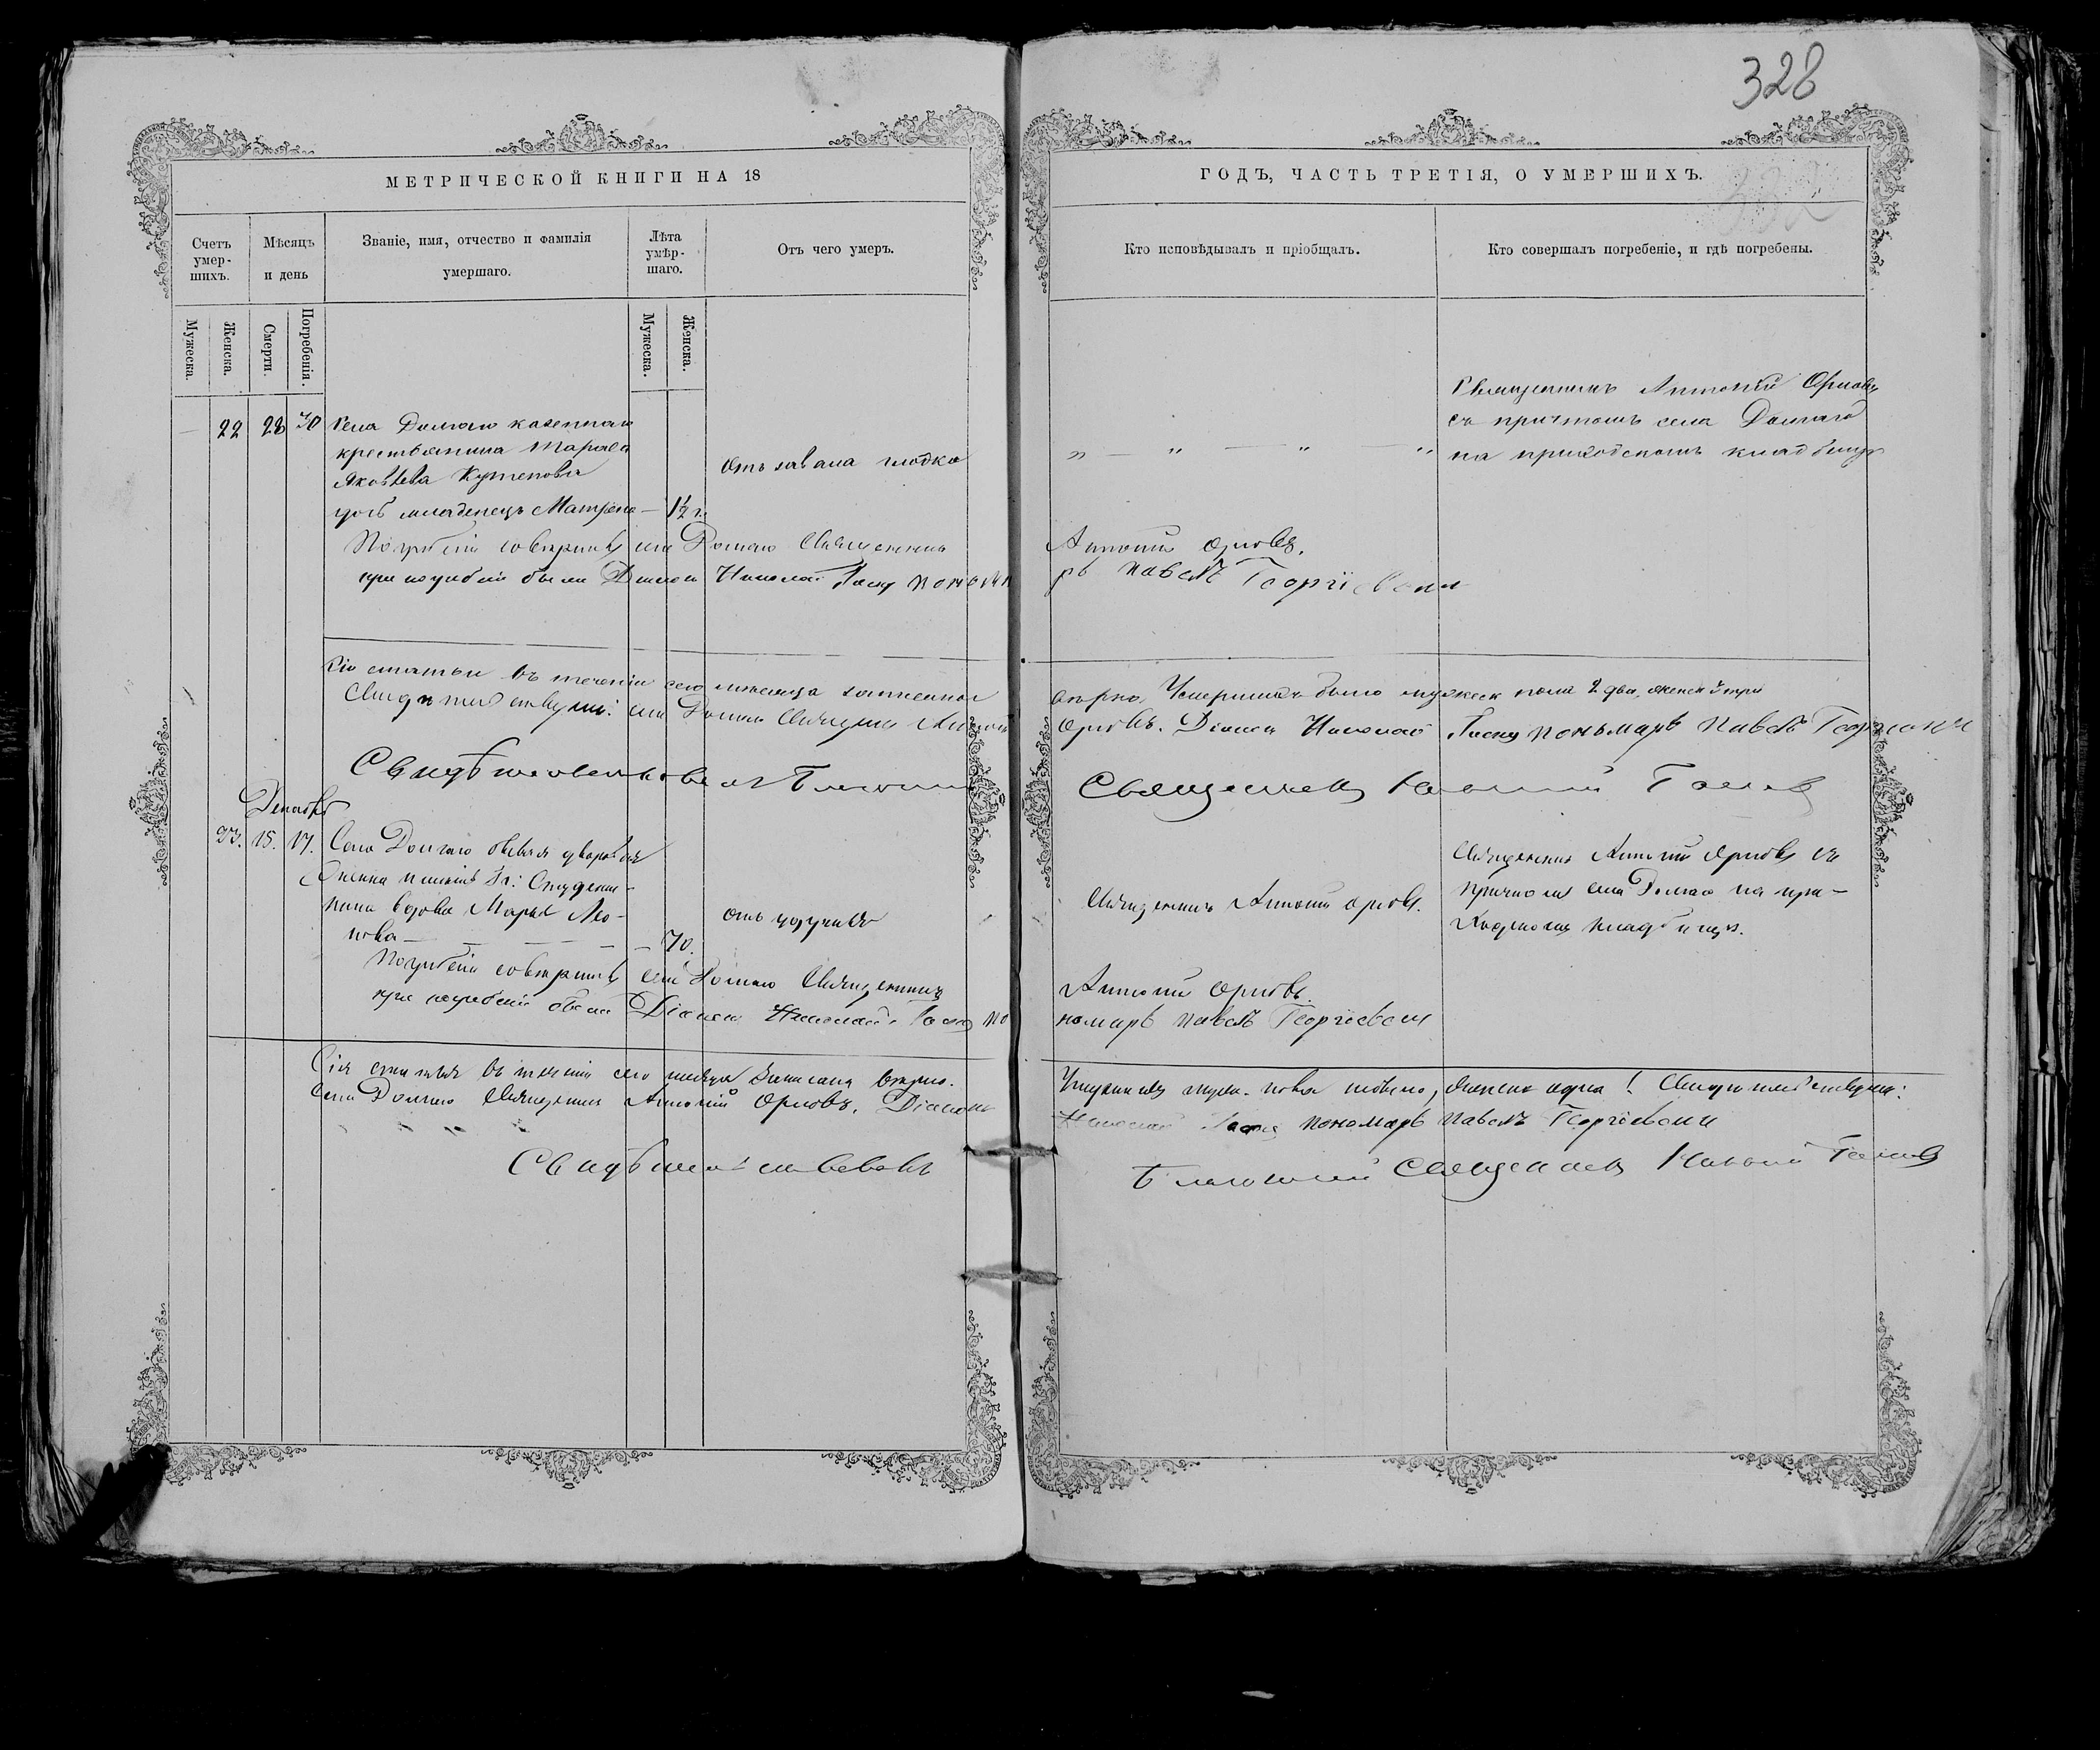 328
МЕТРИЧЕСКОЙ КНИГИ НА 18
Счетъ умер-шихъ.
Мужеска.
Женска.
Мѣсяцъ и день
Смерти.
Погребенія.
Званіе, имя, отчество и фамилія умершаго.
Лѣта умѣр-шаго.
Мужеска.
Женска.
Отъ чего умеръ.
— 22 28 30 Села Долгаго казеннаго
крестьянина Тараса
Яковлева Кутепова
дочь младенецъ Матрена — 1½ г.
отъ
Погребеніе совершилъ села Долгаго Священникъ
при погребеніи были Діаконъ Николай поном
Сіи статьи въ теченіи сего мѣсяца записаны
Свидѣтельствуемъ: села Долгаго Священникъ Антоній
Свидѣтельствовалъ Благочинный
Декабрь
23. 15. 17. Села Долгаго бывшая дворовая
вдова Марья Лео-
нова — — — — — 70.
отъ удушья
Погребеніе совершилъ села Долгаго Священникъ
при погребеніи были Діаконъ Николай по
Сія статья въ теченіи сего мѣсяца записана вѣрно.
Села Долгаго Священникъ Антоній Орловъ. Діаконъ
Свидѣтельствовалъ
ГОДЪ, ЧАСТЬ ТРЕТІЯ, О УМЕРШИХЪ.
Кто исповѣдывалъ и пріобщалъ.
Кто совершалъ погребеніе, и гдѣ погребены.
„ — „ — „ — „
Священникъ Антоній Орловъ
съ причтомъ села Долгаго
на приходскомъ кладбищѣ
Антоній Орловъ.
рь Павелъ Георгіевскій
вѣрно. Умершихъ было мужеск пола 2 два, женск 3 три
Орловъ. Діаконъ Николай пономарь Павелъ Георгіевскій
Священникъ
Священникъ Антоній Орловъ.
Священникъ Антоній Орловъ съ
причтомъ села Долгаго на при-
ходскомъ кладбищѣ.
Антоній Орловъ.
номарь Павелъ Георгіевскій
женска одна 1. Свидѣтельствуемъ:
Николай пономарь Павелъ Георгіевскій
Благочинный Священникъ